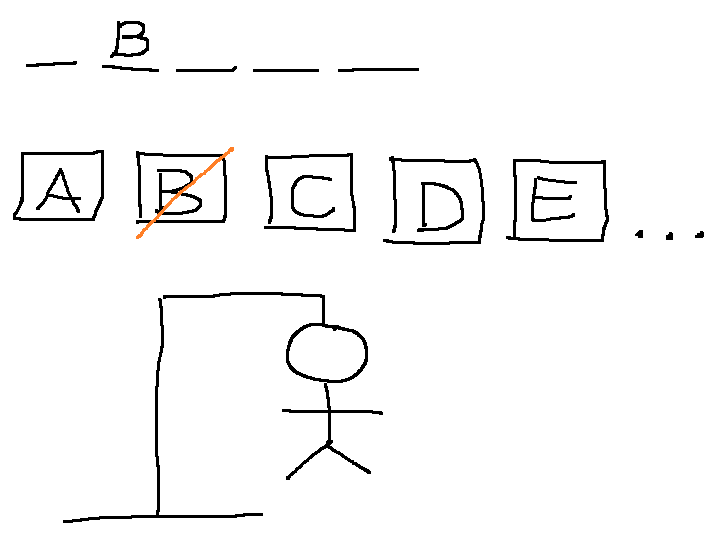 _ B _ _ _
A B C D E ...